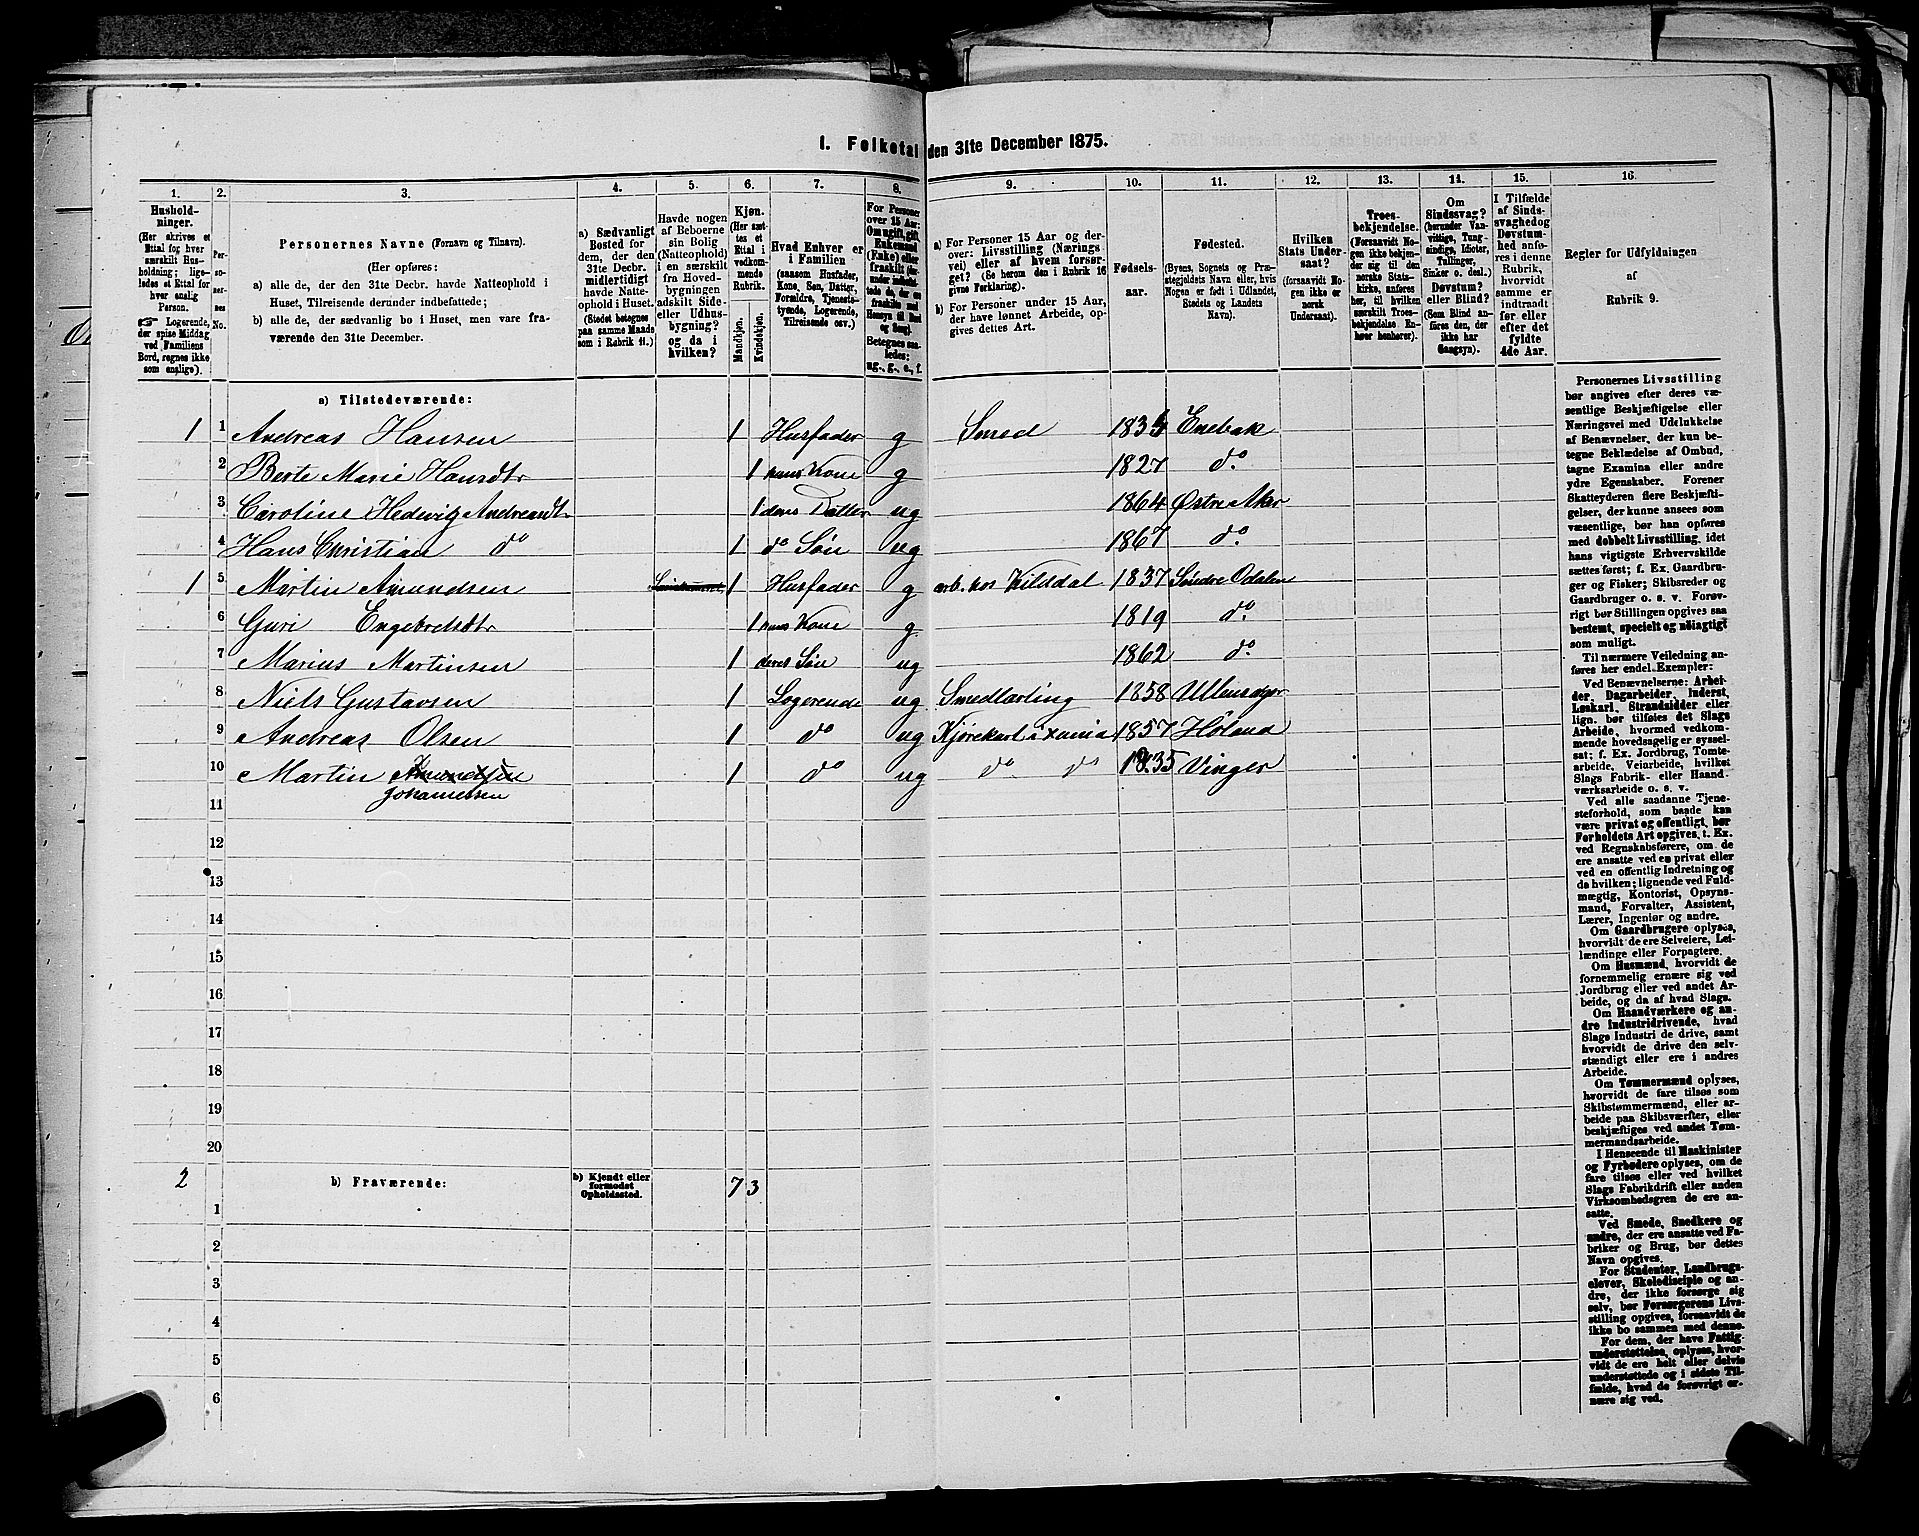 1. Folketal den 31te December 1875.
1. 2. 3. 4. 5. 6. 7. 8. 9. 10. 11. 12. 13. 14. 15. 16.
Hushold-
ninger.
(Her skrives et
Ettal for hver
særskilt Hus-
holdning; lige-
ledes et Ettal for
hver enslig
Person.
☞ Logerende,
der spise Middag
ved Familiens
Bord, regnes ikke
som enslige).
Per-
so-
ner-
nes
No.
Personernes Navne (Fornavn og Tilnavn).
(Her opføres:
a) alle de, der den 31te Decbr. havde Natteophold i
Huset, Tilreisende derunder indbefattede;
b) alle de, der sædvanlig bo i Huset, men vare fra-
værende den 31te December.
a) Sædvanligt
Bosted for
dem, der den
31te Decbr.
midlertidigt
havde Natte-
ophold i Huset.
(Stedet betegnes
paa samme Maade
som i Rubrik 11.)
Havde nogen
af Beboerne
sin Bolig
(Natteophold)
i en særskilt
fra Hoved-
bygningen
adskilt Side-
eller Udhus-
bygning?
og da i
hvilken?
Kjøn.
(Her sæt-
tes et
Ettal i
vedkom-
mende
Rubrik.
Mandkjøn.
Kvindekjøn.
Hvad Enhver er
i Familien
(saasom Husfader,
Kone, Søn, Datter,
Forældre, Tjeneste-
tyende, Logerende,
Tilreisende osv.)
For Personer
over 15 Aar:
Om ugift, gift,
Enkemand
(Enke) eller
fraskilt
Betegnes saa-
ledes:
ug., g., e., f.
a) For Personer 15 Aar og der-
over: Livsstilling (Nærings-
vei) eller af hvem forsør-
get? (Se herom den i Rubrik 16
givne Forklaring).
b) For Personer under 15 Aar,
der have lønnet Arbeide, op-
gives dettes Art.
Fødsels-
aar.
Fødested.
(Byens, Sognets og Præ-
stegjeldets Navn eller, hvis
Nogen er født i Udlandet,
Stedets og Landets
Navn).
Hvilken
Stats Under-
saat?
(forsaavidt No-
gen ikke er
norsk
Undersaat).
Troes-
bekjendelse.
(Forsaavidt No-
gen ikke bekjen-
der sig til den
norske Stats-
kirke, anføres
her, til hvilken
særskilt Troes-
bekjendelse En-
hver henhører).
Om
Sindssvag?
(herunder Van-
vittige, Tung-
sindige, Idioter,
Tullinger,
Sinker o. desl.)
Døvstum?
eller Blind?
(Som Blind an-
føres den, der
ikke har
Gangsyn).
I Tilfælde
af Sinds-
svaghed og
Døvstum-
hed anfø-
res i denne
Rubrik,
hvorvidt
samme er
indtraadt
før eller
efter det
fyldte
4de Aar.
Regler for Udfyldningen
af
Rubrik 9.
a) Tilstedeværende:
1 1 Andreas Hansen 1 Husfader g Smed 1834 Enebak
2 Berte Marie Hansdtr 1 hans Kone g 1827 do
3 Caroline Hedevig Andreasdt. 1 deres Datter ug 1864 Østre Aker
4 Hans Christian do 1 do Søn ug 1867 do
1 5 Martin Amundsen 1 Husfader g arb. hos Kildal 1837 Søndre Odalen
6 Guri Engebretsdtr 1 hans Kone g 1819 do
7 Marius Martinsen 1 deres Søn ug 1862 do
8 Niels Gustavsen 1 Logerende ug Smedlærling 1858 Ullensager
9 Andreas Olsen 1 do ug Kjørekarl i Xania 1857 Høland
10 Martin Amundsen 1 do ug do do 1835 Vinger
Johannessen
11
12
13
14
15
16
17
18
19
20
2 b) Fraværende: b) Kjendt eller
formodet
Opholdssted. 7 3
1
2
3
4
5
6
Personernes Livsstilling
bør angives efter deres væ-
sentlige Beskjæftigelse eller
Næringsvei med Udelukkelse
af Benævnelser, der kun be-
tegne Beklædelse af Ombud,
tagne Examina eller andre
ydre Egenskaber. Forener
Skatteyderen flere Beskjæfti-
gelser, der kunne ansees som
væsentlige, bør han opføres
med dobbelt Livsstilling, idet
hans vigtigste Erhvervskilde
sættes først; f. Ex. Gaardbru-
ger og Fisker; Skibsreder og
Gaardbruger o. s. v. Forøv-
rigt bør Stillingen opgives saa
bestemt, specielt og nøiagtigt
som muligt.
Til nærmere Veiledning an-
føres her endel Exempler:
Ved Benævnelserne: Arbei-
der, Dagarbeider, Inderst,
Løskarl, Strandsidder eller
lign. bør tilføies det Slags
Arbeide, hvormed vedkom-
mende hovedsagelig er syssel-
sat; f. Ex. Jordbrug, Tomte-
arbeide, Veiarbeide, hvilket
Slags Fabrik- eller Haand-
værksarbeide o. s. v.
Ved alle saadanne Tjene-
steforhold, som baade kan
være privat og offentligt, bør
Forholdets Art opgives, t. Ex.
ved Regnskabsførere, om de
ere ansatte ved en privat eller
ved en offentlig Indretning og
da hvilken; lignende ved Fuld-
mægtig, Kontorist, Opsyns-
mand, Forvalter, Assistent,
Lærer, Ingeniør og andre.
Om Gaardbrugere oplyses,
hvorvidt de ere Selveiere, Lei-
lændinge eller Forpagtere.
Om Husmænd, hvorvidt de
fornemmelig ernære sig ved
Jordbrug eller ved andet Ar-
beide, og da af hvad Slags.
Om Haandværkere og an-
dre Industridrivende, hvad
Slags Industri de drive, samt
hvorvidt de drive den selv-
stændigt eller ere i andres
Arbeide.
Om Tømmermænd oplyses,
hvorvidt de fare tilsøs som
Skibstømmermænd, eller ar-
beide paa Skibsværfter, eller
beskjæftiges ved andet Tøm-
mermandsarbeide.
I Henseende til Maskinister
og Fyrbødere oplyses, om de
fare tilsøs eller ved hvilket
Slags Fabrikdrift eller anden
Virksomhedsgren de ere an-
satte.
Ved Smede, Snedkere og
andre, der ere ansatte ved Fa-
briker og Brug, bør dettes
Navn opgives.
For Studenter, Landbrugs-
elever, Skoledisciple og an-
dre, der ikke forsørge sig
selv, bør Forsørgerens Livs-
stilling opgives, forsaavidt de
ikke bo sammen med denne.
For dem, der have Fattig-
understøttelse, oplyses, hvor-
vidt de ere helt eller delvis
understøttede og i sidste Til-
fælde, hvad de forøvrigt er-
nære sig ved.